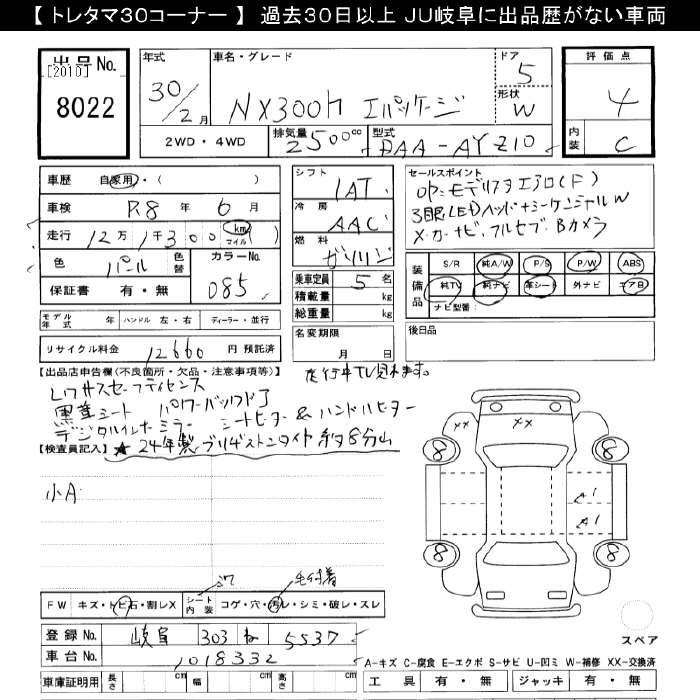 【 トレタマ30コーナー 】 過去30日以上 JU岐阜に出品歴がない車両
出品No. 年式 車名・グレード ドア 5 評価点
[2010] 形状 W
8022 30/2月 NX300h Iパッケージ 4
2WD・4WD 排気量 2500cc 型式 DAA-AYZ10 内装 C
車歴 自家用・( ) シフト IAT セールスポイント
車検 R8年 6月 冷房 AAC OP:モデリスタエアロ(F)
走行 12万1千300 km マイル ( ) 燃料 ガソリン 3眼LEDヘッド+シーケンシャルW
色 パール 色替 カラーNo. 085 メーカーナビ フルセグ Bカメラ
保証書 有・無 乗車定員 5名 装備品 S/R 純A/W P/S P/W ABS
積載量 kg 純TV 純ナビ 革シート 外ナビ エアB
総重量 kg ナビ型番
モデル年式 年 ハンドル 左・右 ディーラー・並行 名変期限 月 日 後日品
リサイクル料金 12660 円 預託済
【出品店申告欄(不良箇所・欠品・注意事項等)】 走行中TV見れます。
レクサスセーフティセンス
黒革シート パワーバックドア
デジタルインナーミラー シートヒーター & ハンドルヒーター
【検査員記入】 ★24年製ブリヂストンタイヤ 約8分山
小A
XX XX
8 8
A1
A1
8 8
シワ 毛付着
FW キズ・トビ石・割レX シート内装 コゲ・穴・汚レ・シミ・破レ・スレ
登録No. 岐阜 303 ね 5537 スペア
車台No. 1018332 A-キズ C-腐食 E-エクボ S-サビ U-凹ミ W-補修 XX-交換済
車庫証明用 長さ cm 幅 cm 高さ cm 工具 有・無 ジャッキ 有・無